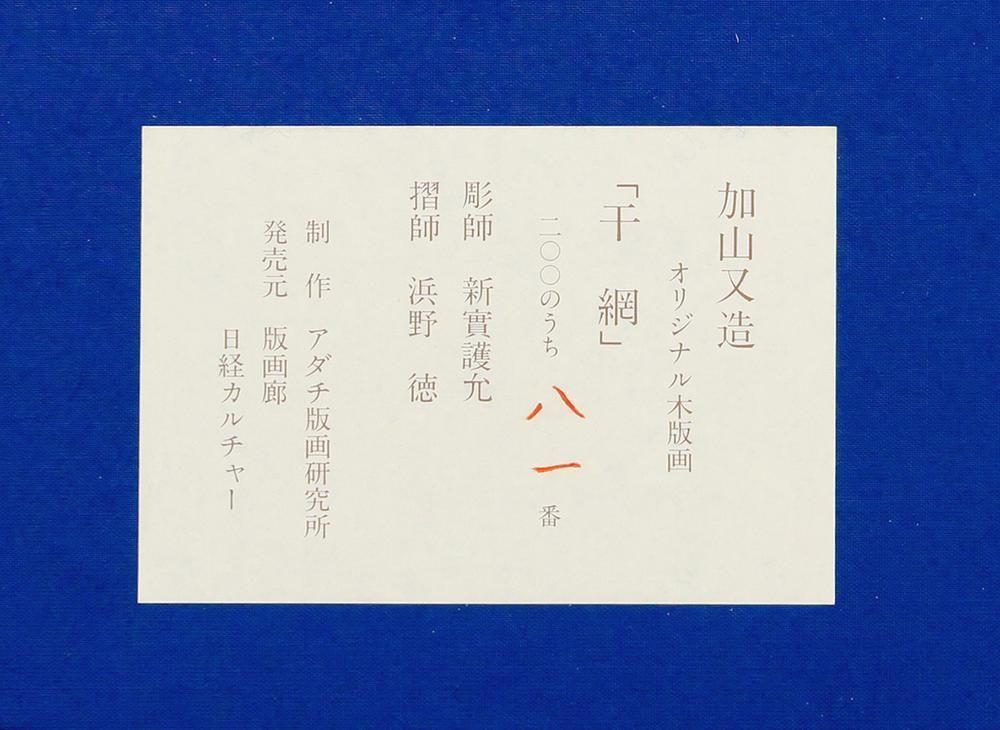 加山又造
オリジナル木版画
「干　網」
二〇〇のうち 八一 番
彫師　新實護允
摺師　浜野　徳
制　作　アダチ版画研究所
発売元　版画廊
日経カルチャー